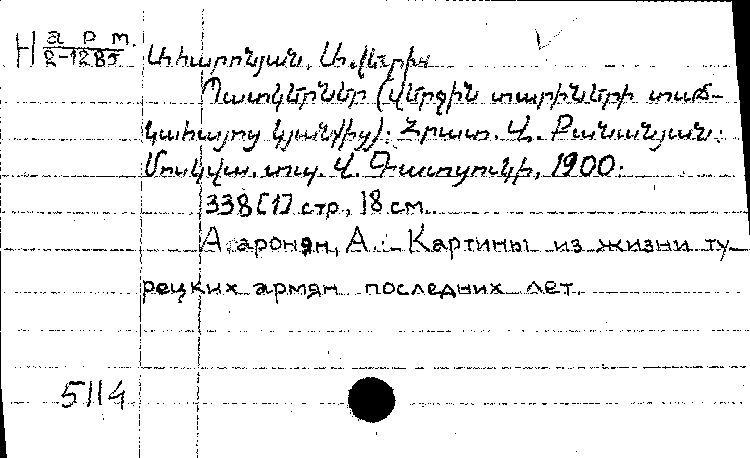 Н арт. 2-1285
Ահարոնյան, Ավետիս
Պատկերներ (վերջին տարիների տաճ-
կահայոց կյանքից): Հրատ. Վ. Քանանյան:
Մոսկվա, տպ. Վ. Գատցուկի, 1900.
338 [1] стр., 18 см.
Агаронян, А. - Картины из жизни ту-
рецких армян последних лет.
5114